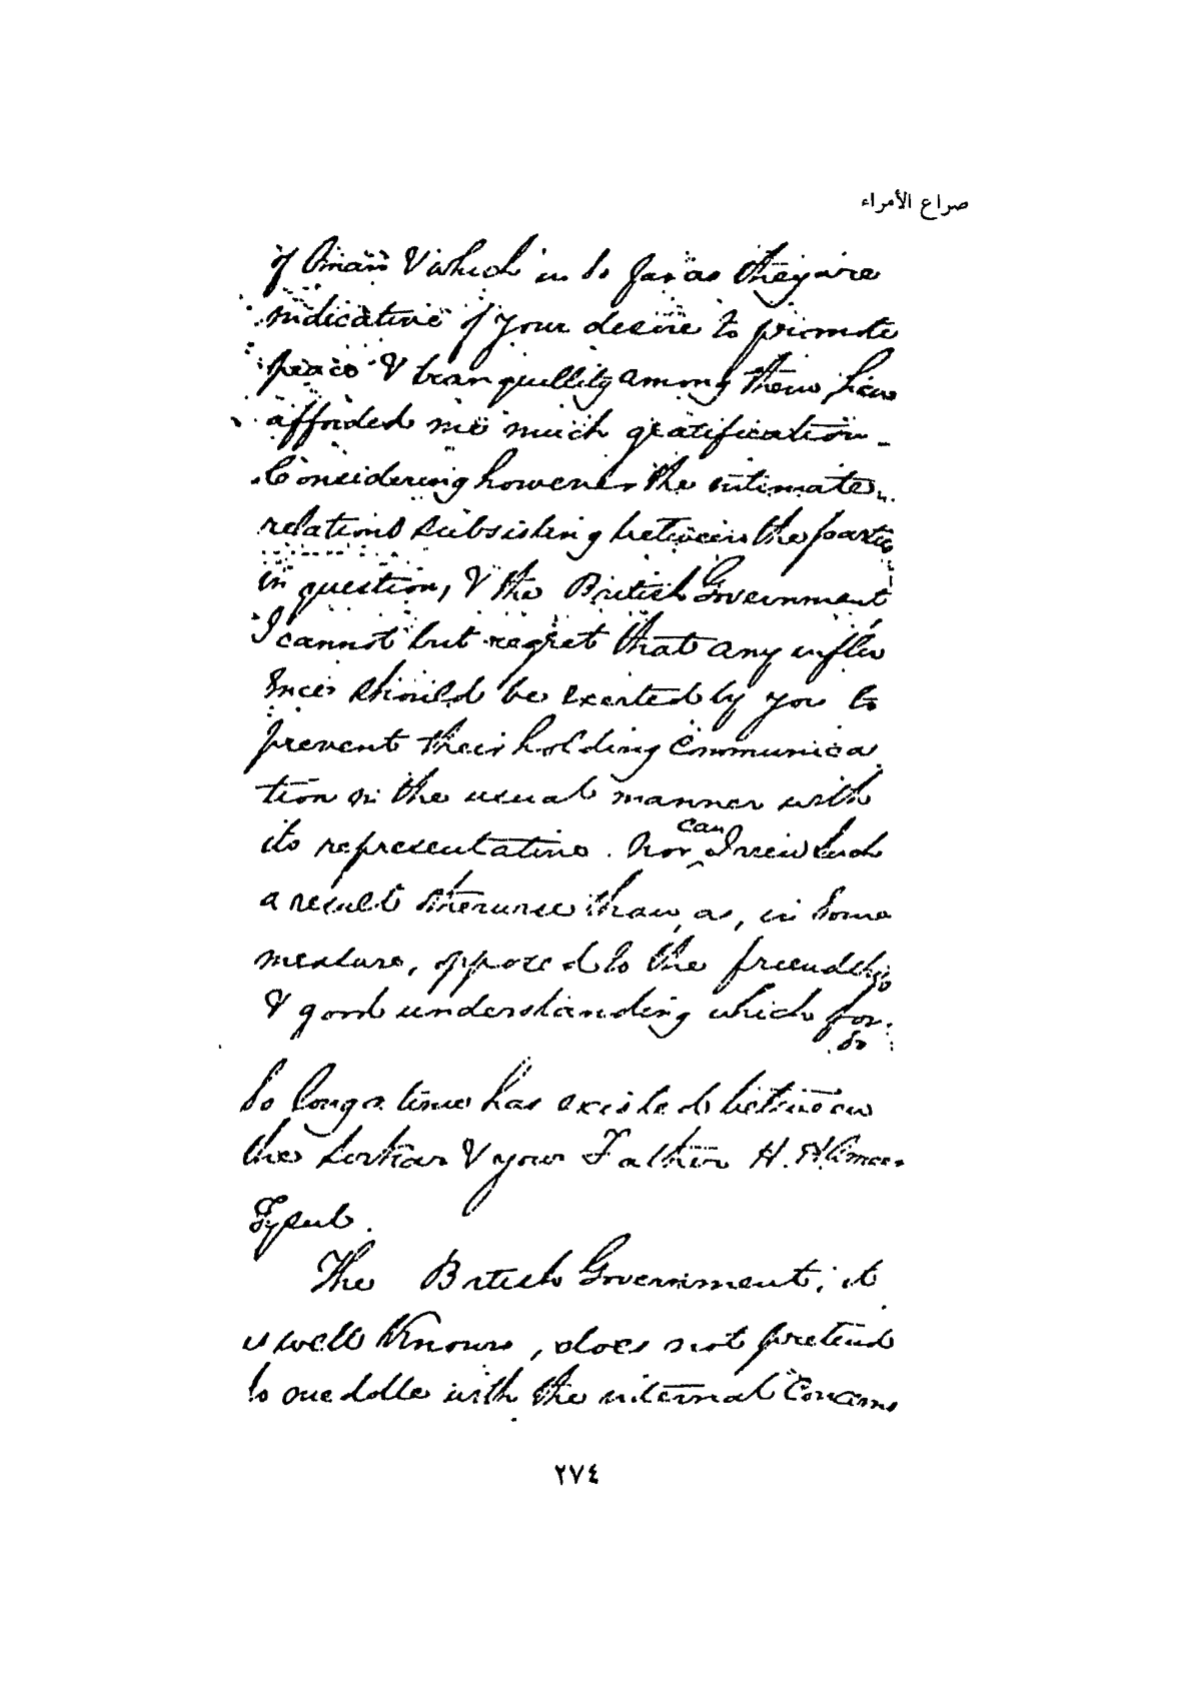 صراع الأمراء
of Oman & which in so far as they are
indicative of your desire to promote
peace & tranquillity among them have
afforded me much gratification -
Considering however the intimate
relations subsisting between the parties
in question, & the British Government
I cannot but regret that any influ
ences should be exerted by you to
prevent their holding communica
tion in the usual manner with
its representative. Nor can I view such
a result otherwise than, as, in some
measure, opposed to the friendship
& good understanding which for
so
so long a time has existed between
the Sirkar & your Father H. H. Ameer
Fysul.
The British Government, it
is well known, does not pretend
to meddle with the internal concerns
٢٧٤